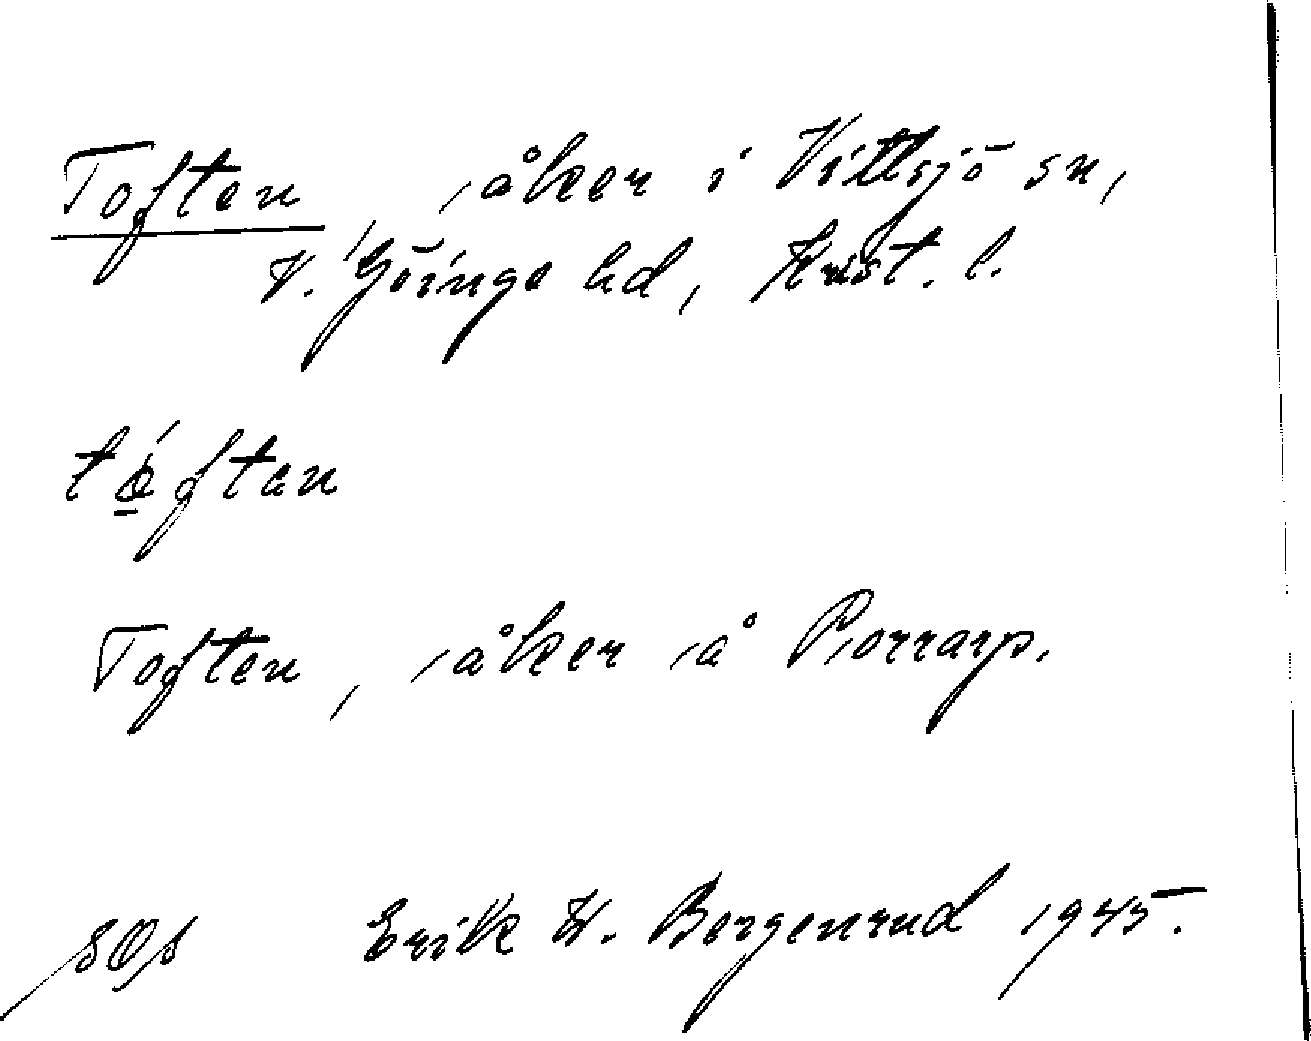 Toften, åker i Vittsjö sn,
V. Göinge hd, Krist. l.
tǫ́ftan
Toften, åker å Porrarp.
Erik W. Bergenrud 1945.